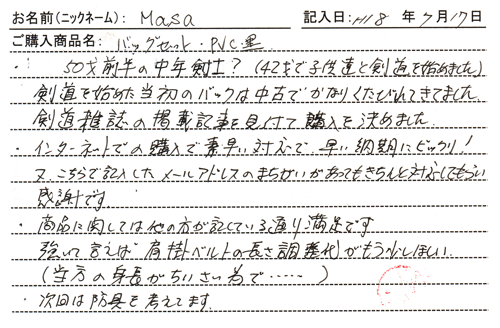 お名前(ニックネーム): Masa 記入日: H18 年 7月17日
ご購入商品名: バッグセット・PVC・黒
・ 50才前半の中年剣士?(42才で子供達と剣道を始めました)
剣道を始めた当初のバックは中古でかなりくたびれてきてました。
剣道雑誌の掲載記事を見つけて購入を決めました。
・インターネットでの購入で素早い対応で、早い納期にビックリ!
又、こちらで記入したメールアドレスのまちがいがあってもきちんと対応してもらい
感謝です
・商品に関しては他の方が記している通り満足です
強いて言えば肩掛ベルトの長さ調整代がもう少しほしい。
(当方の身長がちいさい為で……)
・次回は防具を考えてます。